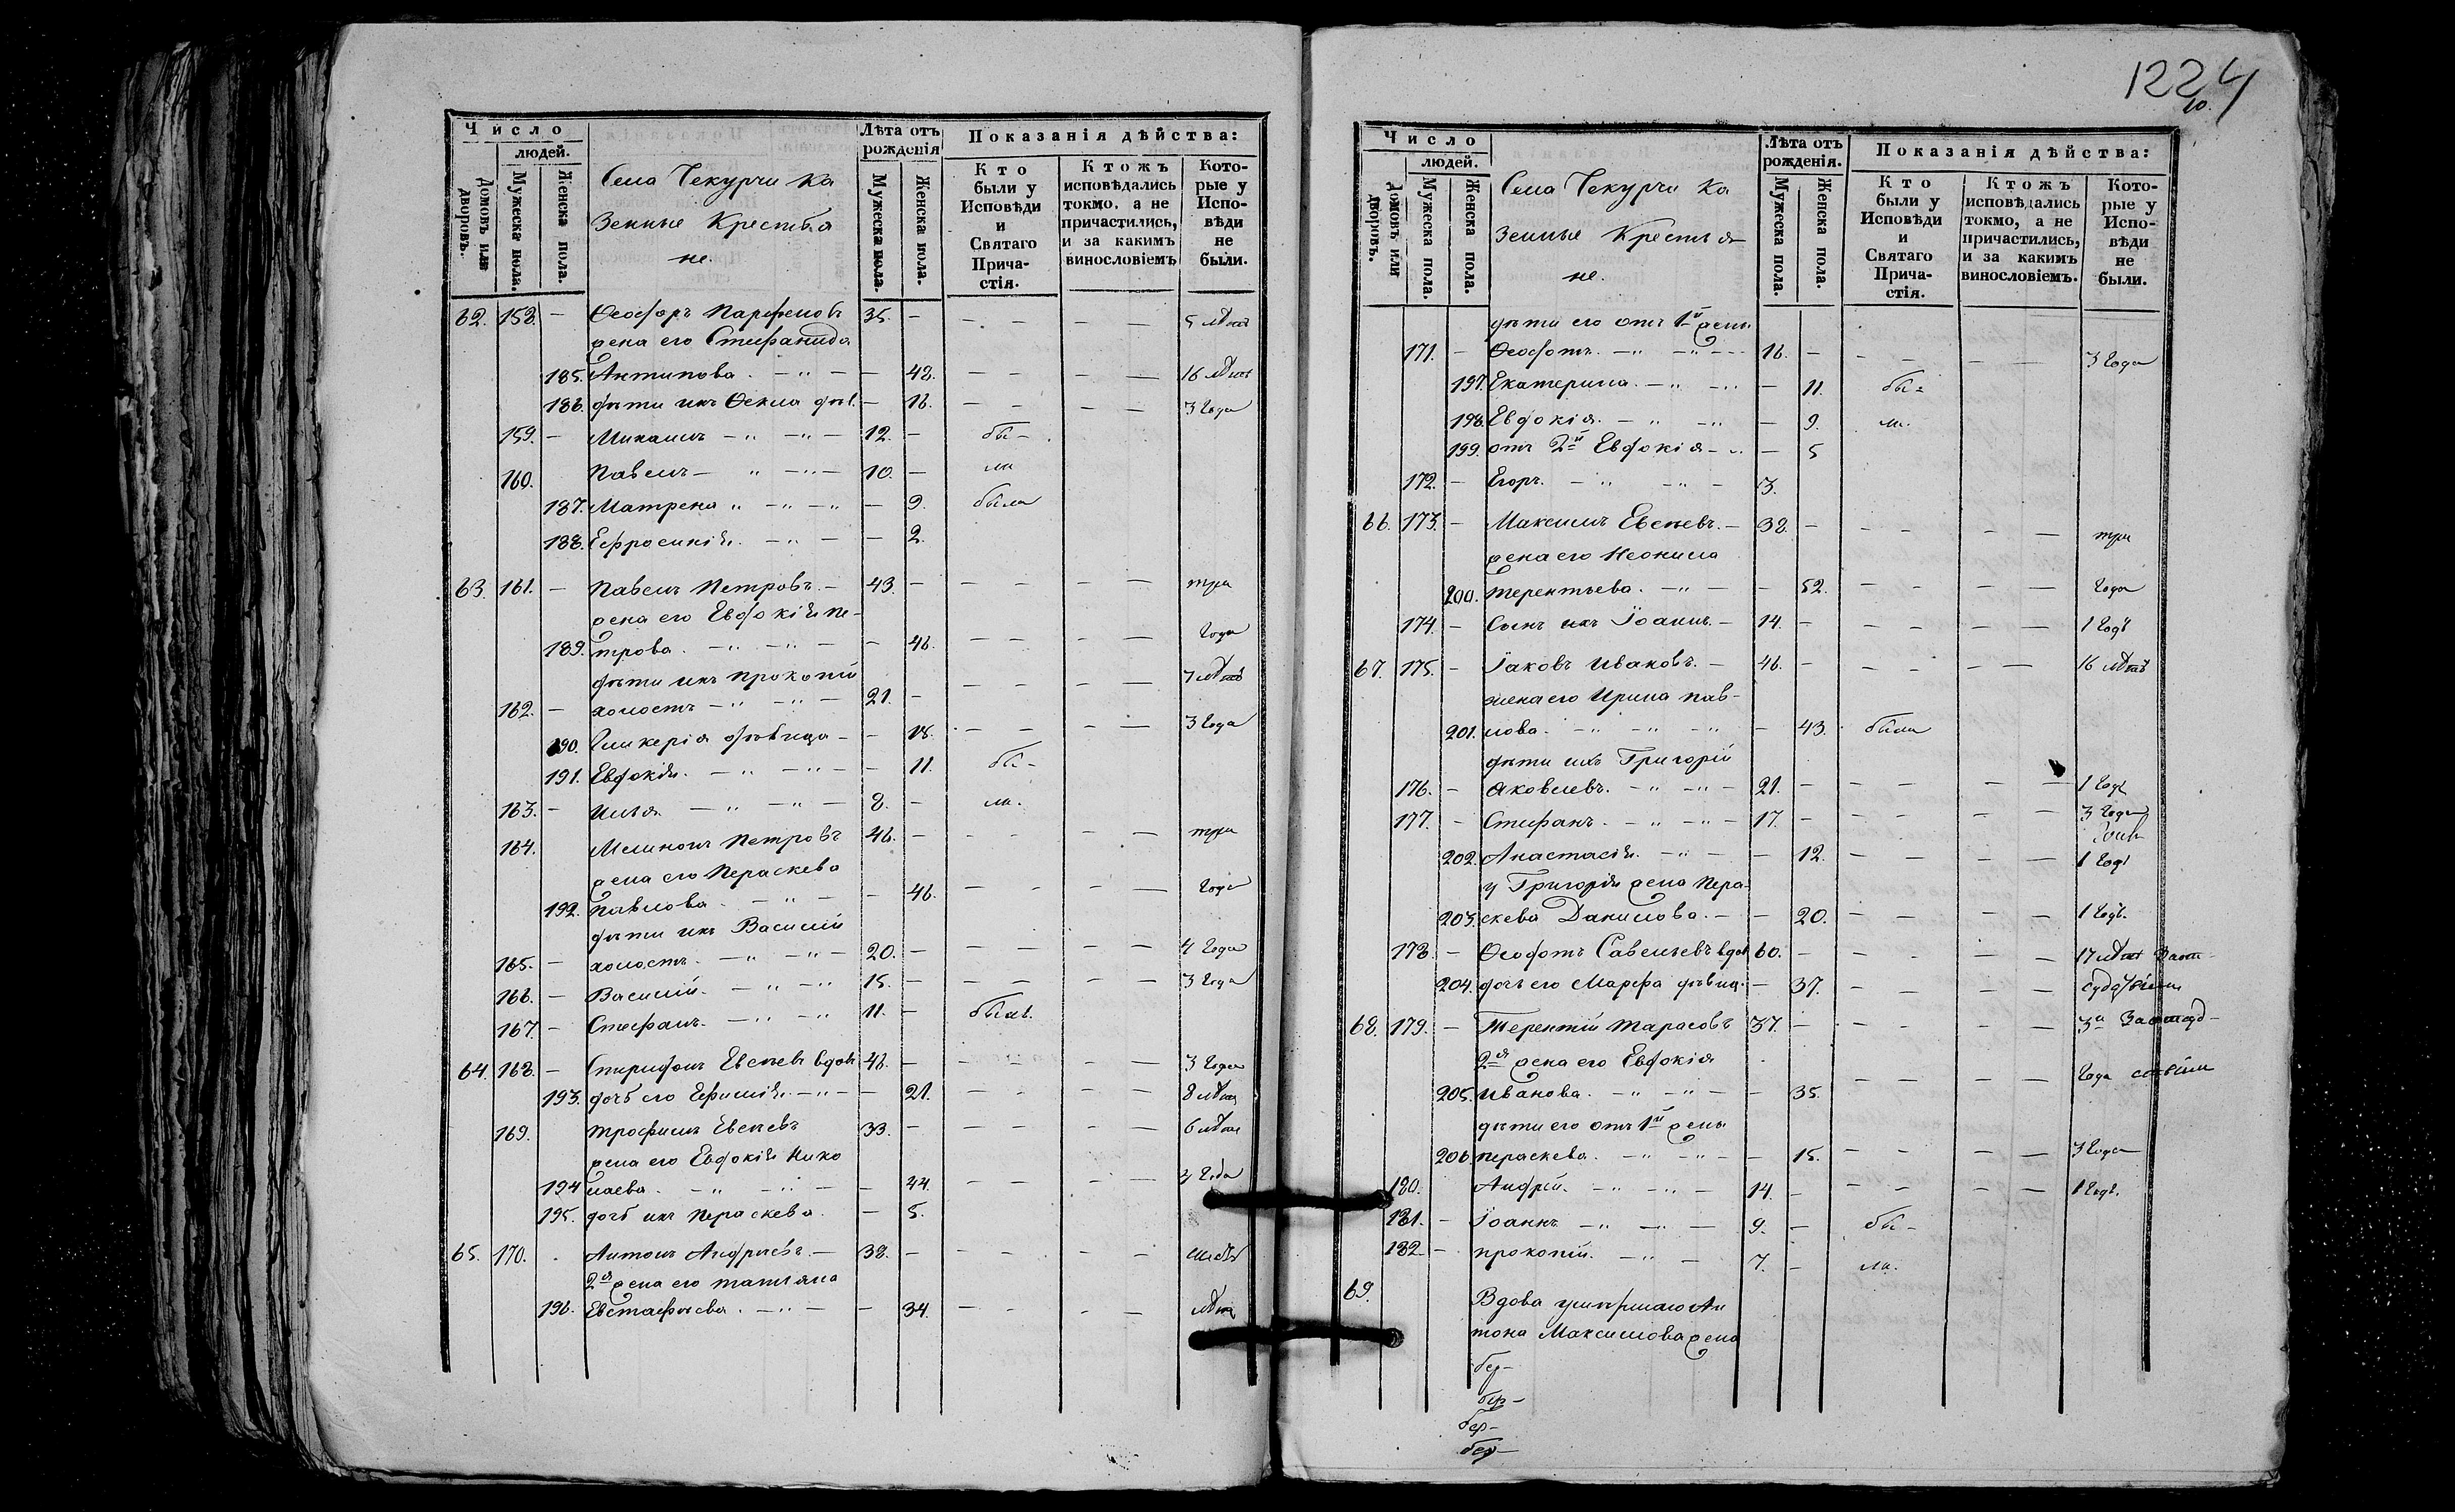 Число
людей.
Домовъ или дворовъ.
Мужеска пола.
Женска пола.
Села Чекурчи Ка
зенные Крестья
не.
Лѣта отъ
рожденія
Мужеска пола.
Женска пола.
Показанія дѣйства:
Кто
были у
Исповѣди
и
Святаго
Прича-
стія.
Ктожъ
исповѣдались
токмо, а не
причастились,
и за какимъ
винословіемъ
Кото-
рые у
Испо-
вѣди
не
были.
62. 158. — Ѳеодоръ Парфеновъ 35. — — — — — 5 лѣтъ
жена его Стефанида
185. Антипова. — „ — — 48. — — — — 16 лѣтъ
186. дѣти ихъ Ѳекла дѣв. — 16. — — — — 3 года
159. — Михаилъ — „ — „ — 12. — бы-
160. Павелъ — „ — „ — 10. — ли
187. Матрена „ — „ — „ — 9. была
188. Ефросинія. — „ — — 2.
63. 161. — Павелъ Петровъ. — 43. — — — — — три
жена его Евдокія Пе-
189. трова. — „ — „ — — 46. — — — — года
дѣти ихъ Прокопій
162. — холостъ — „ — „ — 21. — — — — — 7 лѣтъ
190. Гликерія дѣвица — — 18. — — — — 3 года
191. Евдокія. — „ — „ — — 11. бы-
163. — Илья — „ — „ — 8. — ли.
164. Петровъ 46. — — — — — три
жена его Параскева
192. Павлова — „ — — 46. — — — — года
дѣти ихъ Василий
165. — холостъ. — „ — „ — 20. — — — — — 4 года
166. — Василий. — „ — „ 15. — — — — — 3 года
167. — Стефанъ. — „ — „ 11. — былъ.
64. 168. — Спиридонъ Евсѣевъ вдовъ 46. — — — — — 3 года
193. дочь его — „ — — 21. — — — — 8 лѣтъ
169. Трофимъ Евсѣевъ 33. — — — — — 6 лѣтъ
жена его Евдокія Нико
194 лаева. — „ — „ — — 44. — — — — 3 года
195. дочь ихъ Параскева. — 5.
65. 170. Антонъ Андреевъ. — 38. — — — — — шесть
2я жена его Татьяна
196. Евстафьева. — „ — — 34. — — — — лѣтъ
1224
Число
людей.
Домовъ или дворовъ.
Мужеска пола.
Женска пола.
Села Чекурчи Ка
зенные Крестья
не.
Лѣта отъ
рожденія.
Мужеска пола.
Женска пола.
Показанія дѣйства:
Кто
были у
Исповѣди
и
Святаго
Прича-
стія.
Ктожъ
исповѣдались
токмо, а не
причастились,
и за какимъ
винословіемъ.
Кото-
рые у
Испо-
вѣди
не
были.
дѣти его отъ 1й жены
171. — Ѳеодотъ. — „ — „ — 16. — — — — — 3 года
197. Екатерина. — „ — „ — 11. бы-
198. Евдокія. — „ — „ — 9. ли.
199. отъ 2й Евдокія — „ — 5
172. — Егоръ. — „ — „ — 3.
66. 173. — Максимъ Евсѣевъ. — 38. — — — — — три
жена его Неонила
200. Терентьева. — „ — — 52. — — — — года
174. — Сынъ ихъ Іоаннъ. — 14. — — — — — 1 годъ
67. 175. — Іаковъ Ивановъ. — 46. — — — — — 16 лѣтъ
жена его Ирина Пав-
201. лова. — „ — „ — „ — 43. была
дѣти ихъ Григорій
176. — Яковлевъ. — „ — „ — 21. — — — — — 1 годъ
177. — Стефанъ. — „ — „ — 17. — — — — — 3 года
202. Анастасія. — „ — — 12. — — — — 1 годъ
у Григорія жена Пара-
203. скева Данилова. — — 20. — — — — 1 годъ.
178. — Ѳеодотъ Савельевъ вдов 60. — — — — — 17 лѣтъ
204. дочь его Марфа дѣвица. — 37. — — — —
68. 179. — Терентій Тарасовъ 37. — — — — — 3а
2я жена его Евдокія
205. Иванова. — „ — „ — — 35. — — — — года
дѣти его отъ 1й жены
206. Параскева. — „ — „ — — 15. — — — — 3 года
180. Андрей. — „ — „ — 14. — — — — — 1 годъ.
181. — Іоаннъ — „ — „ — 9. — бы-
182 — Прокопій. — „ — 7. — ли.
69. Вдова умершаго Ан
тона Максимова жена